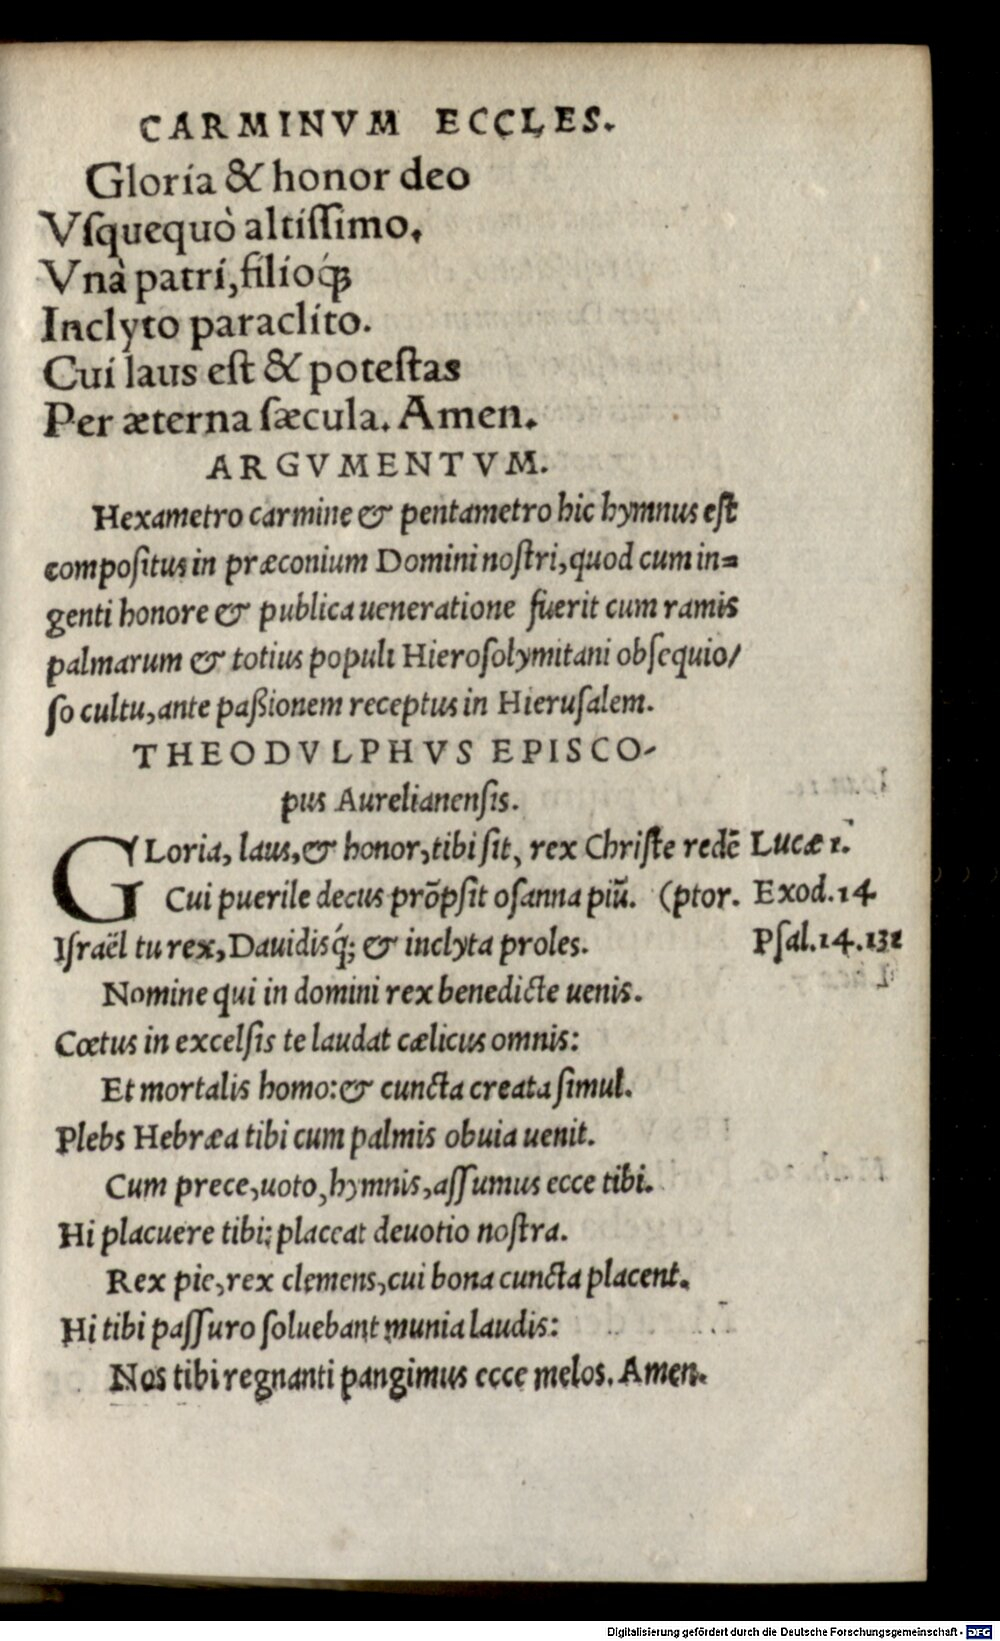 CARMINVM ECCLES.
Gloria & honor deo
Vſquequò altiſſimo,
Vnà patri, filioq́ꝫ
Inclyto paraclito.
Cui laus eſt & poteſtas
Per æterna ſæcula. Amen.
ARGVMENTVM.
Hexametro carmine & pentametro hic hymnus eſt
compoſitus in præconium Domini noſtri, quod cum in=
genti honore & publica ueneratione fuerit cum ramis
palmarum & totius populi Hieroſolymitani obſequio/
ſo cultu, ante paßionem receptus in Hieruſalem.
THEODVLPHVS EPISCO-
pus Aurelianenſis.
GLoria, laus, & honor, tibi ſit, rex Chriſte redē Lucæ 1.
Cui puerile decus prōpſit oſanna piū. (ptor. Exod. 14
Iſraël tu rex, Dauidisq́; & inclyta proles. Pſal. 14. 131
Nomine qui in domini rex benedicte uenis.
Cœtus in excelſis te laudat cælicus omnis:
Et mortalis homo: & cuncta creata ſimul.
Plebs Hebræa tibi cum palmis obuia uenit.
Cum prece, uoto, hymnis, aſſumus ecce tibi.
Hi placuere tibi: placeat deuotio noſtra.
Rex pie, rex clemens, cui bona cuncta placent.
Hi tibi paſſuro ſoluebant munia laudis:
Nos tibi regnanti pangimus ecce melos. Amen.
Digitalisierung gefördert durch die Deutsche Forschungsgemeinschaft - DFG